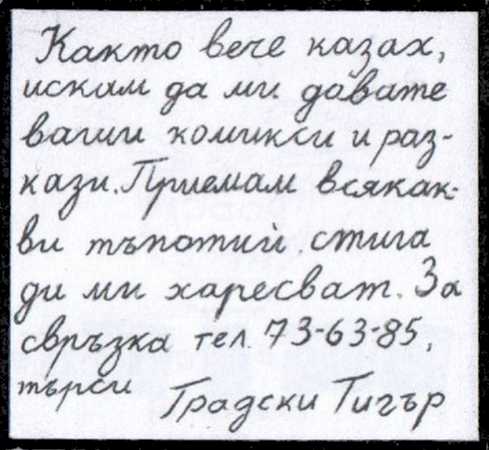 Както вече казах,
искам да ми давате
ваши комикси и раз-
кази. Приемам всякак-
ви тъпотии стига
да ми харесват. За
свръзка тел. 73-63-85,
търси Градски Тигър